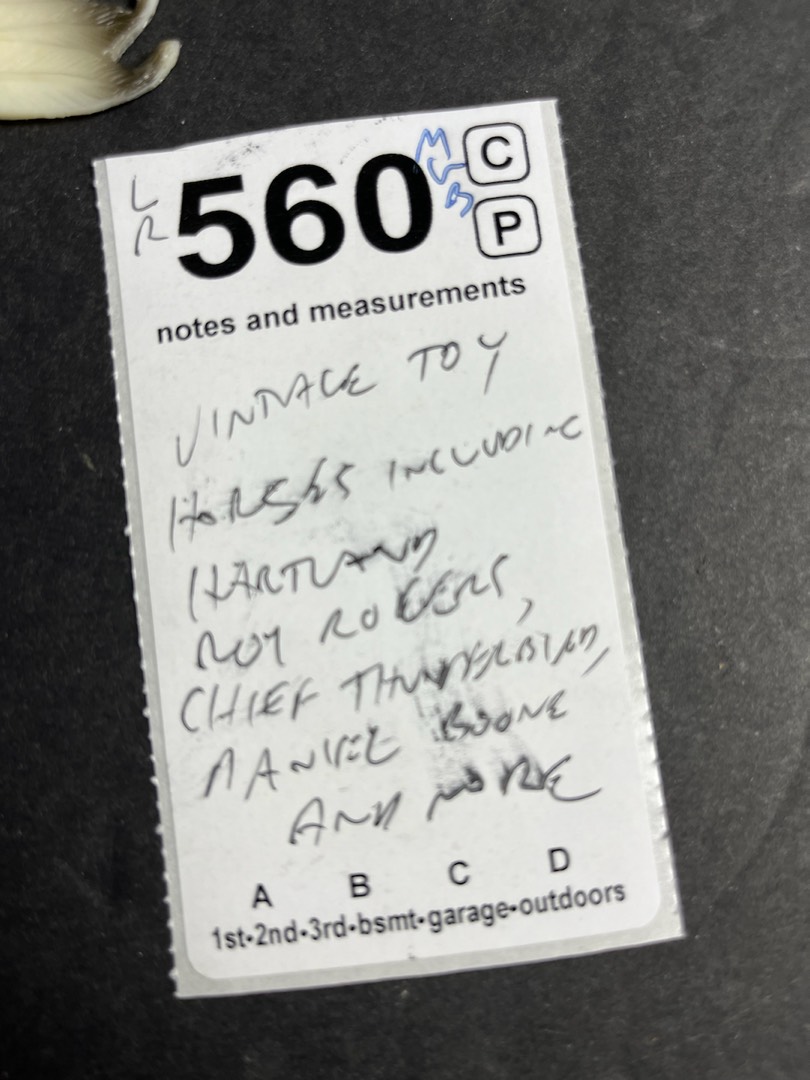 L
R
560
MGB
C
P
notes and measurements
VINTAGE TOY
HORSES INCLUDING
HARTLAND
ROY ROGERS,
CHIEF THUNDERBIRD,
DANIEL BOONE
AND MORE
A B C D
1st•2nd•3rd•bsmt•garage•outdoors